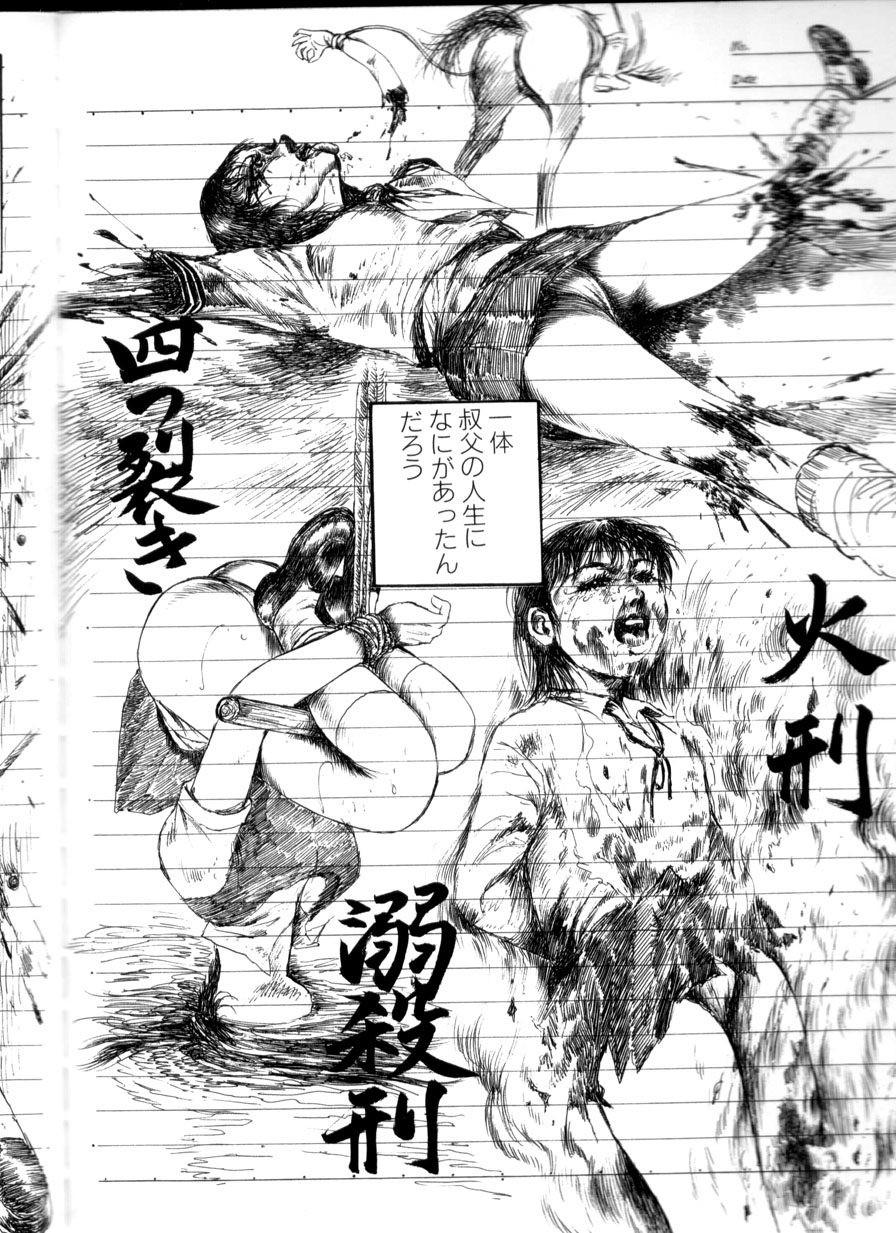 No.
Date
四つ裂き
一体
叔父の人生に
なにがあったん
だろう
火刑
溺殺刑